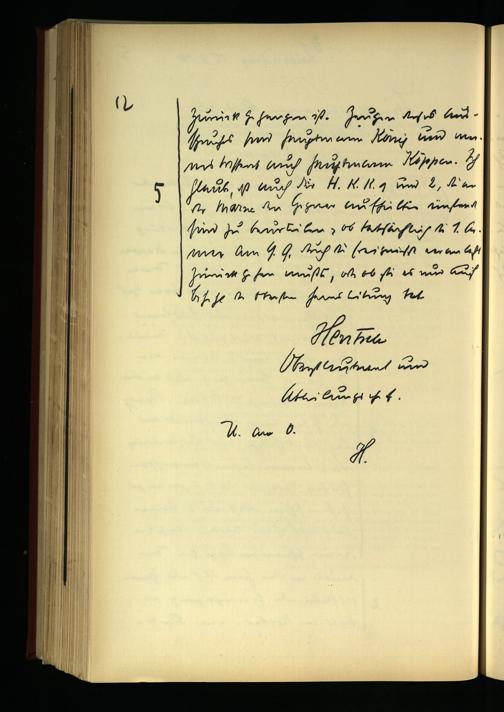 12
zurückgegangen ist. Zeugen dieses Aus-
spruchs sind Hauptmann König und
auch Hauptmann Köppen. Ich
5
glaube, auch die H. K. K. 1 und 2, die an
der Marne den Gegner aufhielten
sind zu beurteilen, ob tatsächlich die 1. Ar-
mee am 9. 9. durch die Ereignisse veranlaßt
zurückgehen mußte, oder ob sie es nur auf
Befehl der obersten Heeresleitung tat
Hentsch
Oberstleutnant und
Abteilungschef.
U. an O.
H.